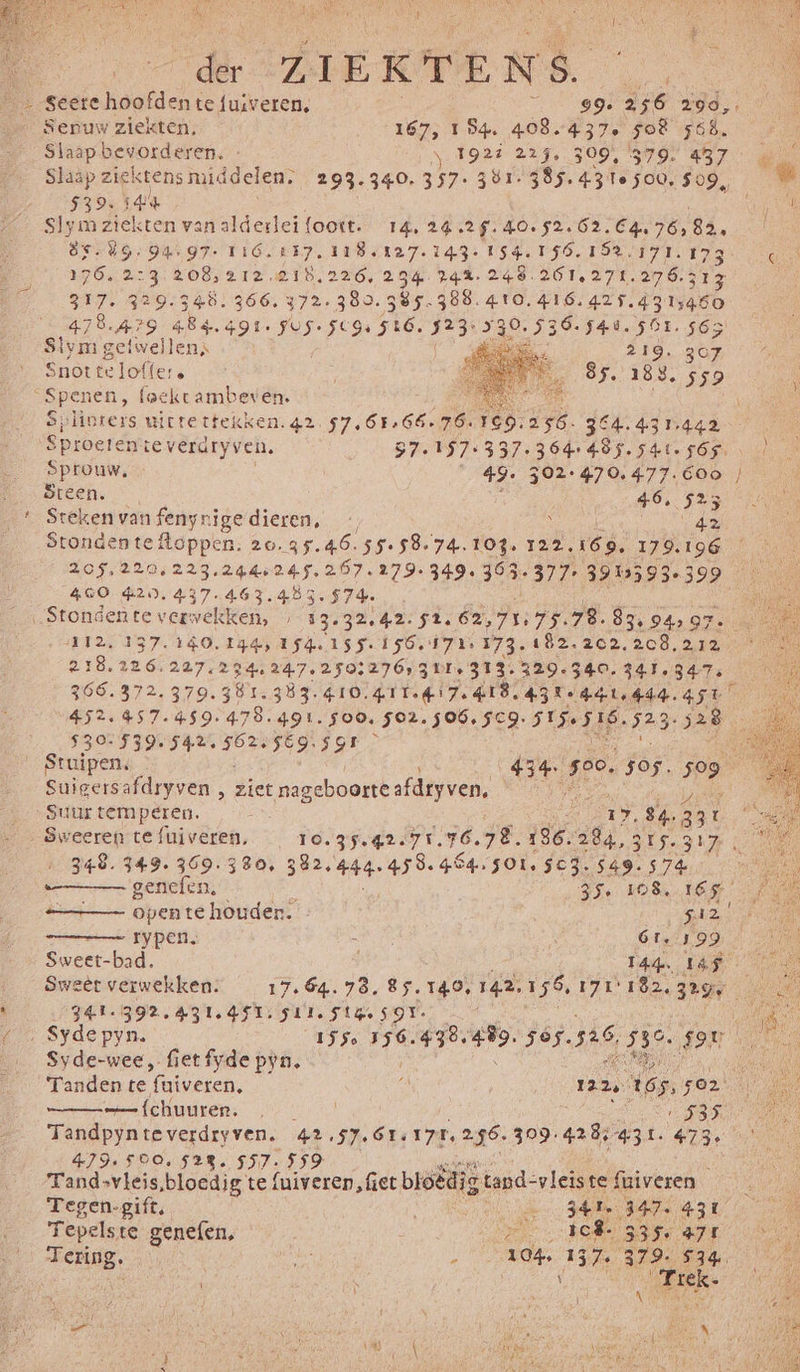 der ZIEKTENS.
Seere hoofden te suiveren, 99. 256 290,
Senuw ziekten. 167, 184. 408. 437. 508 568.
Slaap bevorderen. 192. 225. 309, 379. 437
Slaap ziektens middelen. 293. 340. 357. 381. 385. 431. 500, 509,
539. 544
Slym ziekten van alderlei soort. 14, 24. 25. 40. 52. 62. 64. 76, 82.
85. 89. 94. 97. 116. 117. 118. 127. 143. 154. 156. 162. 171. 173
176. 203. 208, 212. 218, 226, 234. 242. 248. 261, 271. 276. 313
317. 329. 348. 366. 372. 380. 385. 388. 410. 416. 425. 431, 460
478. 479 484. 491. 505. 509. 516. 523. 530. 536. 541. 561. 563
Slym geswellen, 219. 307
Snotte lossers 85. 188. 559
Spenen, soekt ambeven.
Splinters uitte trekken. 42. 57, 61, 66. 76. 169. 256. 364. 431. 442
Sproeten te verdryven. 97. 157. 337. 364. 485. 541. 565
Sprouw. 49. 302. 470. 477. 600
Steen. 46, 523
Steken van fenynige dieren, 42
Stonden te stoppen. 20. 35. 46. 55. 58. 74. 103. 122. 169. 179. 196
205, 220, 223. 244. 245. 267. 279. 349. 363. 377. 391, 393. 399
400 420. 437. 463. 483. 574.
Stonden te verwekken, 13. 32. 42. 52. 62, 71. 75. 78. 83, 94, 97.
112. 137. 140. 144, 154. 155. 156. 171. 173. 182. 202. 208. 212
218. 226. 227. 234. 247. 250. 276, 311. 313. 329. 340. 341. 347.
366. 372. 379. 381. 383. 410. 411. 417. 418. 431. 441. 444. 451
452. 457. 459. 478. 491. 500. 502. 506. 509. 515. 516. 523. 528
530. 539. 542. 562. 569. 591
Stuipen. 434. 500. 505. 509
Suigers afdryven, ziet nageboorte afdryven.
Suur temperen. 17. 84. 331
Sweeren te suiveren. 10. 35. 42. 71. 76. 78. 186. 284, 315. 317
348. 349. 369. 380, 382, 444. 458. 464, 501. 503. 549. 574
——— genesen, 35. 108. 165
——— open te houden. 512
——— rypen. 61. 199
Sweet-bad. 144. 145
Sweet verwekken. 17. 64. 73. 85. 140, 142. 156, 171. 182, 329.
341. 392. 431. 451. 511. 514. 591.
Syde pyn. 155. 156. 438. 489. 505. 526, 530. 591
Syde-wee, siet syde pyn.
Tanden te suiveren, 122. 165, 502
——— schuuren. 535
Tandpyn te verdryven. 42. 57. 61. 171, 256. 309. 428, 431. 473.
479. 500, 528. 557. 559
Tand-vleis, bloedig te suiveren, siet bloedig tand-vleis te suiveren
Tegen-gift. 341. 347. 431
Tepels te genesen, 108. 335. 471
Tering. 104. 137. 379. 534
Trek-